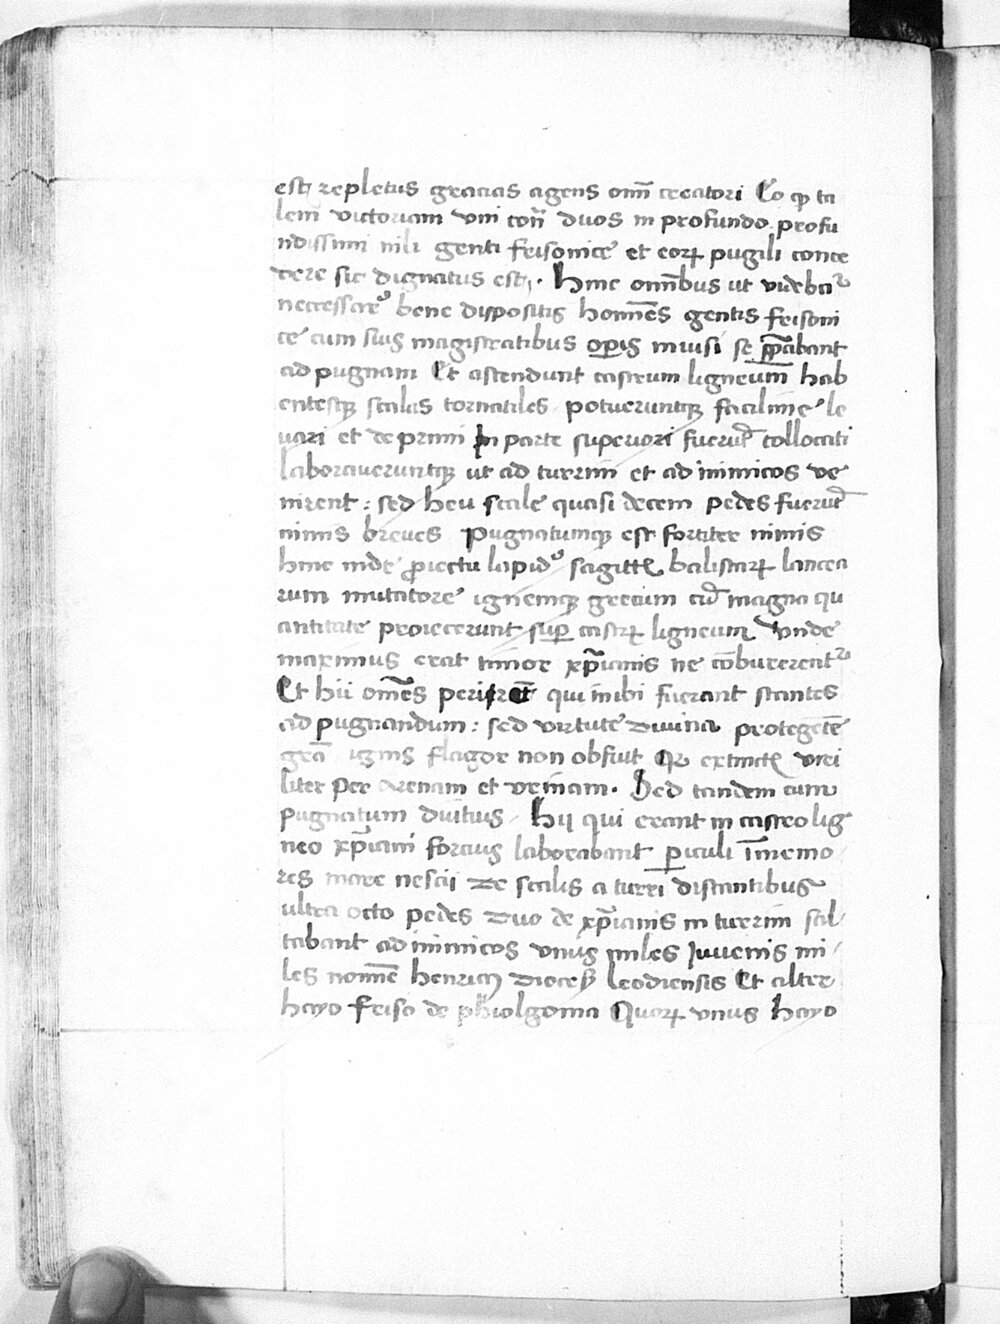 est repletus gracias agens omni creatori Eo qp ta
lem victoriam vni con̄ duos in profundo profu
ndissimi nili genti frisonice et eorꝝ pugili conce
dere sic dignatus est. Hinc omībus ut videbat᷑
necessare bene dispositis homīes gentis frisoni
ce cum suis magistratibus opis inuisi se ꝑꝑabant
ad pugnam Et ascendunt castrum ligneum hab
entesqꝫ scalas tornatiles potueruntqꝫ facilime le
uari et de primi In parte superiori fuerūt collocati
laboraueruntqꝫ ut ad turrim et ad inimicos ve
nirent : sed heu scale quasi decem pedes fuerūt
nimis breues Pugnatumqꝫ est fortiter nimis
hinc inde ꝓiectu lapidꝰ sagittꝝ balistarꝝ lancea
rum mutatore ignemqꝫ grecum cū magna qu
antitate proiecerunt suꝑ castrꝝ ligneum Vnde
maximus erat timor xp̄ianis ne cōburerent᷑
Et hii om̄es perirēt qui inibi fuerant stantes
ad pugnandum : sed virtute diuina protegēte
grā ignis flagor non obfuit Qꝛ extinctꝝ viri
liter per arenam et vrinam. Sed tandem cum
pugnatum diutius Hij qui erant in castro lig
neo xp̄iani forcius laborabant ꝑiculi īmemo
res mare nescii De scalis a turri distantibus
ultra octo pedes Duo de xp̄ianis in turrim sal
tabant ad inimicos vnus miles Juuenis mi
les nomīe henricꝰ Diocesꝭ leodiensis Et alter
hayo friso de phiolgoma Quorꝝ vnus hayo